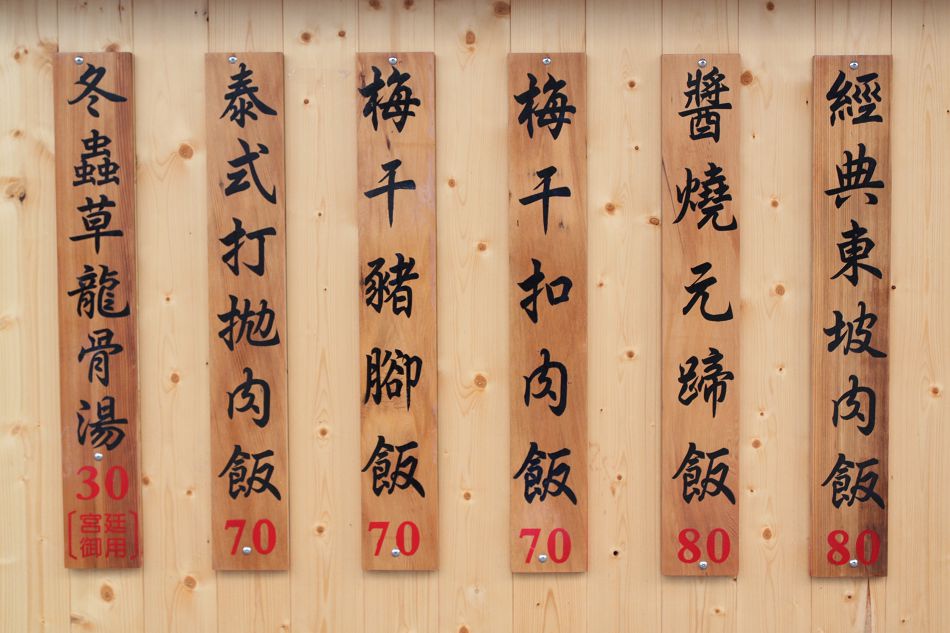 經典東坡肉飯
80
醬燒元蹄飯
80
梅干扣肉飯
70
梅干豬腳飯
70
泰式打拋肉飯
70
冬蟲草龍骨湯
30
〔宮廷
御用〕